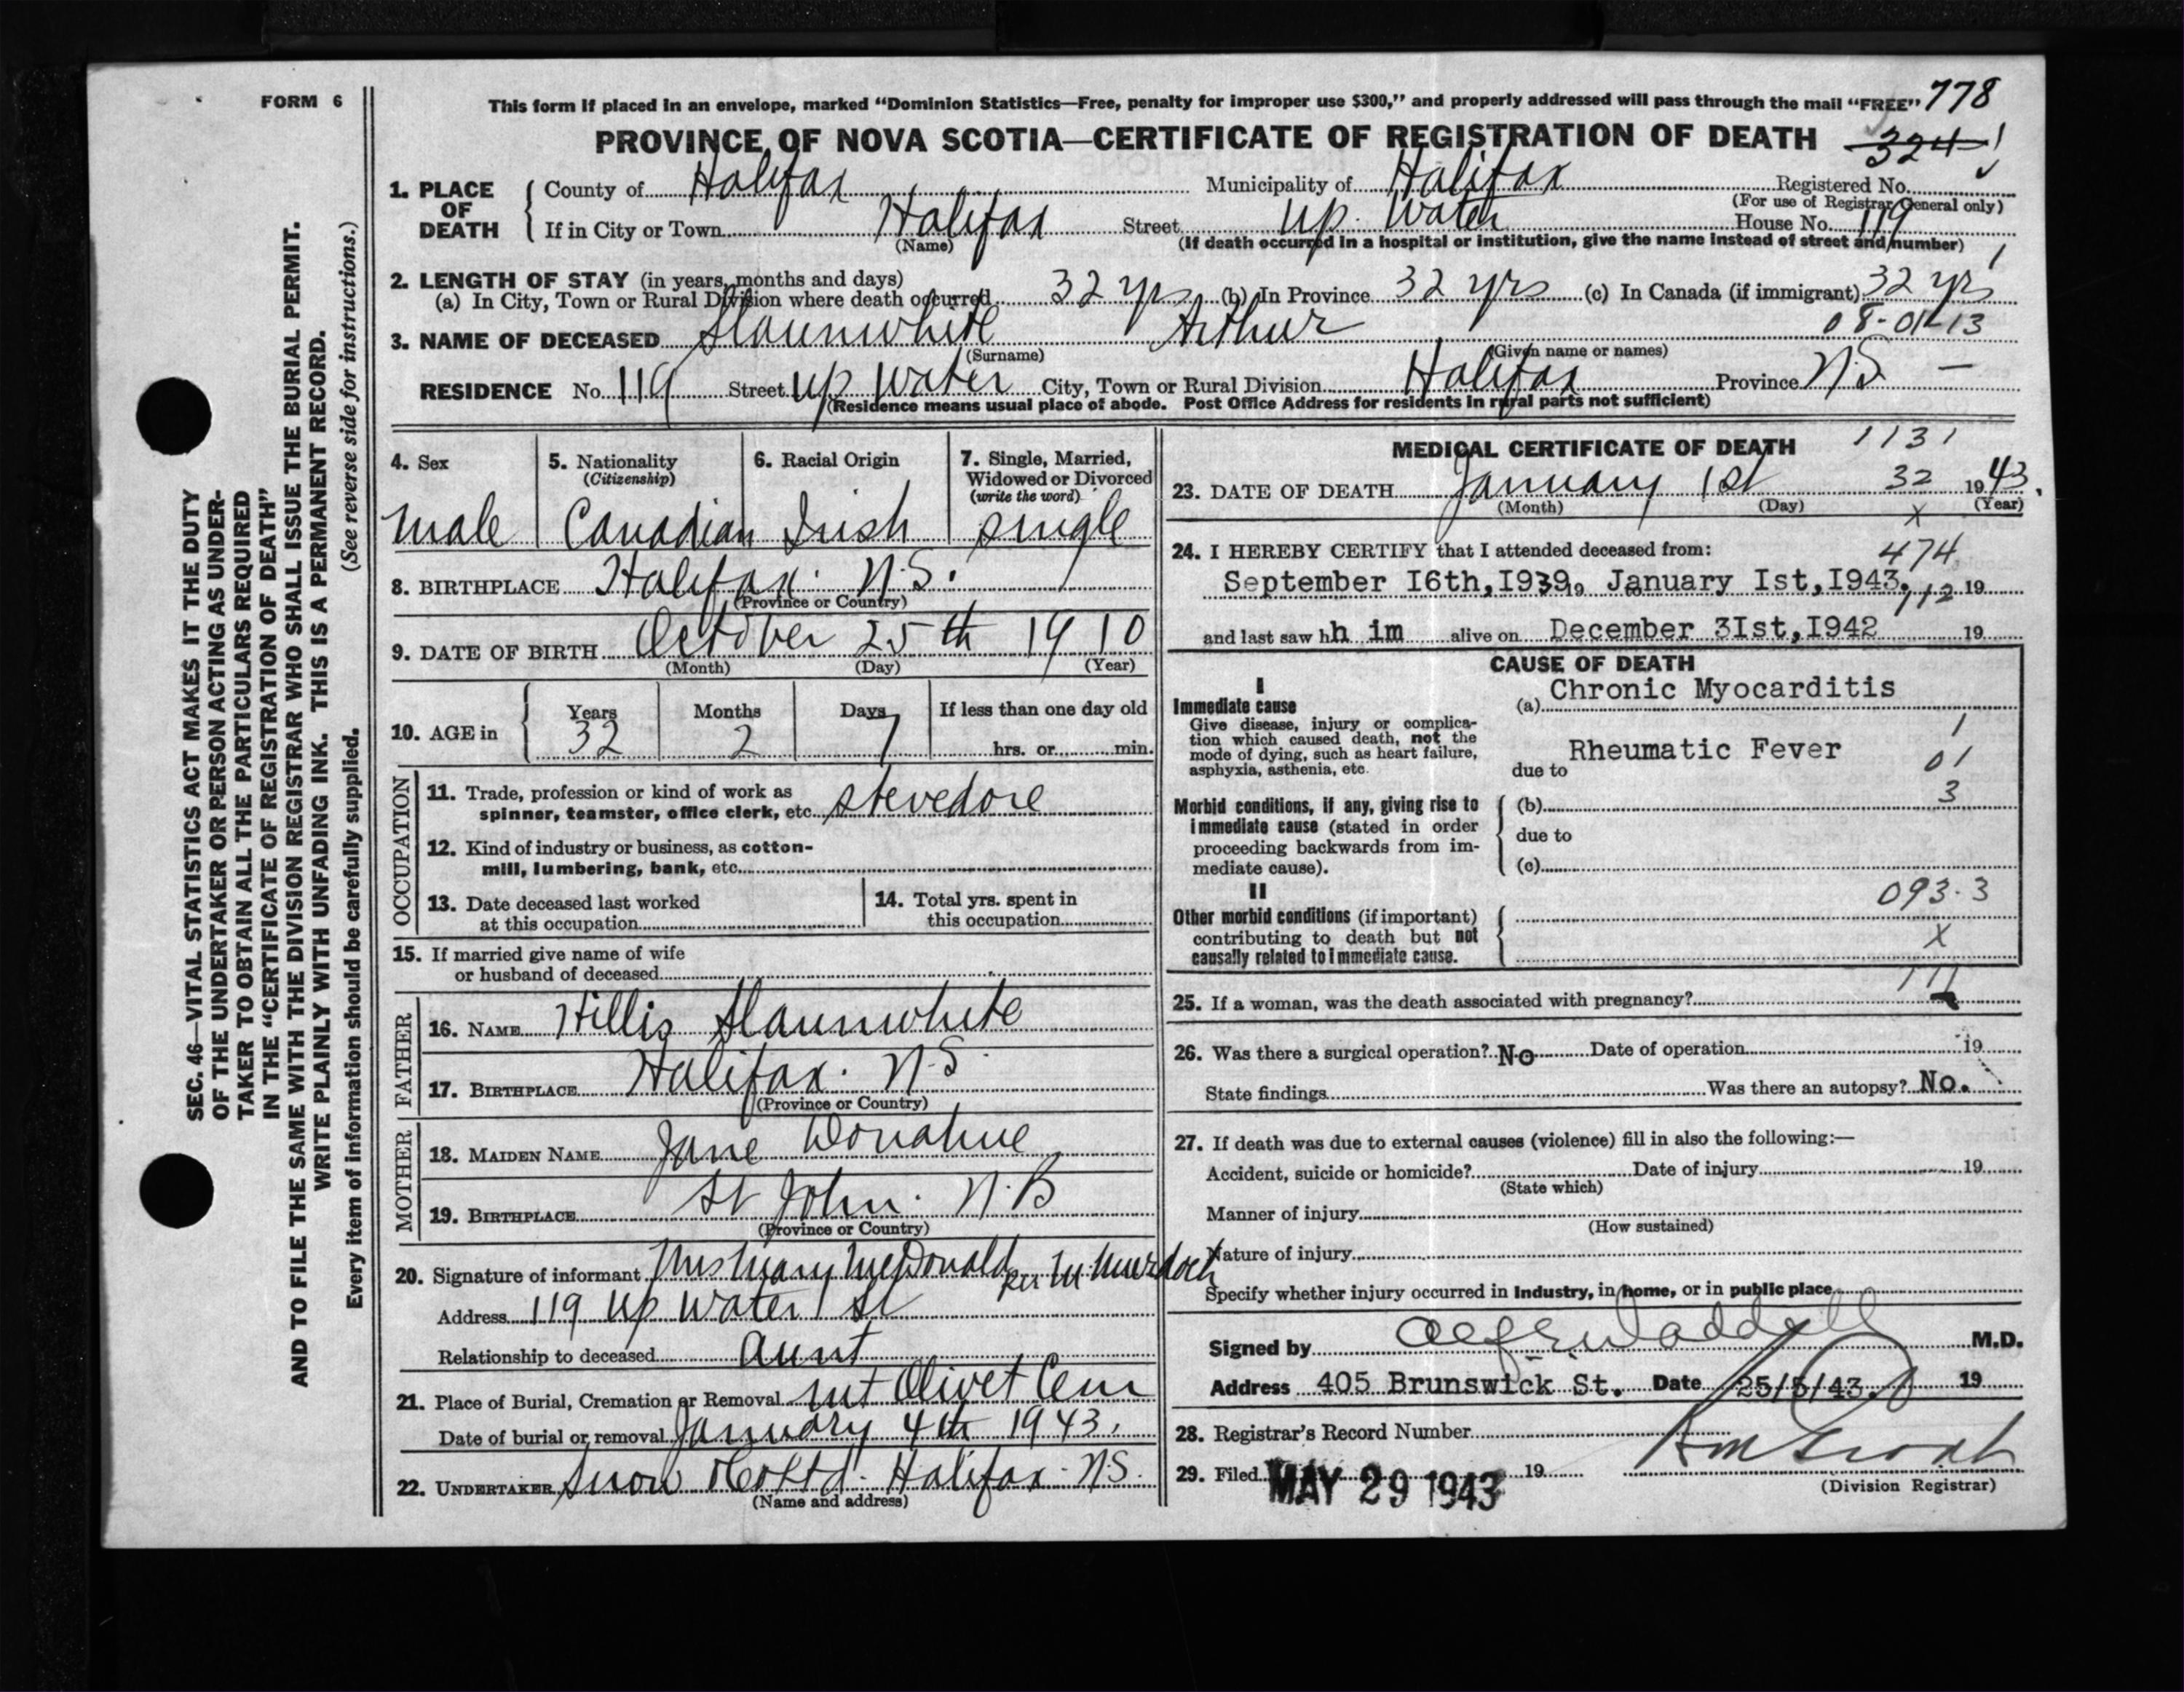 FORM 6
This form if placed in an envelope, marked “Dominion Statistics—Free, penalty for improper use $300,” and properly addressed will pass through the mail “FREE” 778
PROVINCE OF NOVA SCOTIA—CERTIFICATE OF REGISTRATION OF DEATH 324
1. PLACE OF DEATH
County of Halifax Municipality of Halifax Registered No.
(For use of Registrar General only)
If in City or Town Halifax Street Up. Water House No. 119
(Name) (If death occurred in a hospital or institution, give the name instead of street and number)
2. LENGTH OF STAY (in years, months and days)
(a) In City, Town or Rural Division where death occurred 32 yrs (b) In Province 32 yrs (c) In Canada (if immigrant) 32 yrs
08-01-13
3. NAME OF DECEASED Slaunwhite Arthur
(Surname) (Given name or names)
RESIDENCE No. 119 Street Up Water City, Town or Rural Division Halifax Province N.S —
(Residence means usual place of abode. Post Office Address for residents in rural parts not sufficient)
4. Sex
male
5. Nationality
(Citizenship)
Canadian
6. Racial Origin
Irish
7. Single, Married,
Widowed or Divorced
(write the word)
single
8. BIRTHPLACE Halifax. N.S.
(Province or Country)
9. DATE OF BIRTH October 25th 1910
(Month) (Day) (Year)
10. AGE in
Years Months Days If less than one day old
32 2 7 hrs. or min.
OCCUPATION
11. Trade, profession or kind of work as
spinner, teamster, office clerk, etc. stevedore
12. Kind of industry or business, as cotton-
mill, lumbering, bank, etc.
13. Date deceased last worked
at this occupation
14. Total yrs. spent in
this occupation
15. If married give name of wife
or husband of deceased
FATHER
16. NAME Hillis Slaunwhite
17. BIRTHPLACE Halifax. N.S.
(Province or Country)
MOTHER
18. MAIDEN NAME Jane Donahue
19. BIRTHPLACE St John. N.B
(Province or Country)
20. Signature of informant Mrs Mary McDonald per M Murdoch
Address 119 Up Water St
Relationship to deceased aunt
21. Place of Burial, Cremation or Removal Mt Olivet Cem
Date of burial or removal January 4th 1943.
22. UNDERTAKER Snow & Co Ltd. Halifax. N.S.
(Name and address)
MEDICAL CERTIFICATE OF DEATH 1131
23. DATE OF DEATH January 1st 32 1943.
(Month) (Day) (Year)
X
24. I HEREBY CERTIFY that I attended deceased from: 474
September I6th, I939, to January Ist, I943. 112 19
and last saw hh im alive on December 3Ist, I942 19
CAUSE OF DEATH
I
Immediate cause
Give disease, injury or complica-
tion which caused death, not the
mode of dying, such as heart failure,
asphyxia, asthenia, etc.
(a) Chronic Myocarditis
1
due to Rheumatic Fever
01
3
Morbid conditions, if any, giving rise to
immediate cause (stated in order
proceeding backwards from im-
mediate cause).
(b)
due to
(c)
II
Other morbid conditions (if important)
contributing to death but not
causally related to immediate cause.
093.3
X
25. If a woman, was the death associated with pregnancy?
26. Was there a surgical operation? No Date of operation 19
State findings Was there an autopsy? No.
27. If death was due to external causes (violence) fill in also the following:—
Accident, suicide or homicide? Date of injury 19
(State which)
Manner of injury
(How sustained)
Nature of injury
Specify whether injury occurred in Industry, in home, or in public place
Signed by Alf E Waddell M.D.
Address 405 Brunswick St. Date 25/5/43. 19
28. Registrar’s Record Number
29. Filed MAY 29 1943 19
(Division Registrar)
SEC. 46—VITAL STATISTICS ACT MAKES IT THE DUTY
OF THE UNDERTAKER OR PERSON ACTING AS UNDER-
TAKER TO OBTAIN ALL THE PARTICULARS REQUIRED
IN THE “CERTIFICATE OF REGISTRATION OF DEATH”
AND TO FILE THE SAME WITH THE DIVISION REGISTRAR WHO SHALL ISSUE THE BURIAL PERMIT.
WRITE PLAINLY WITH UNFADING INK. THIS IS A PERMANENT RECORD.
Every item of information should be carefully supplied. (See reverse side for instructions.)